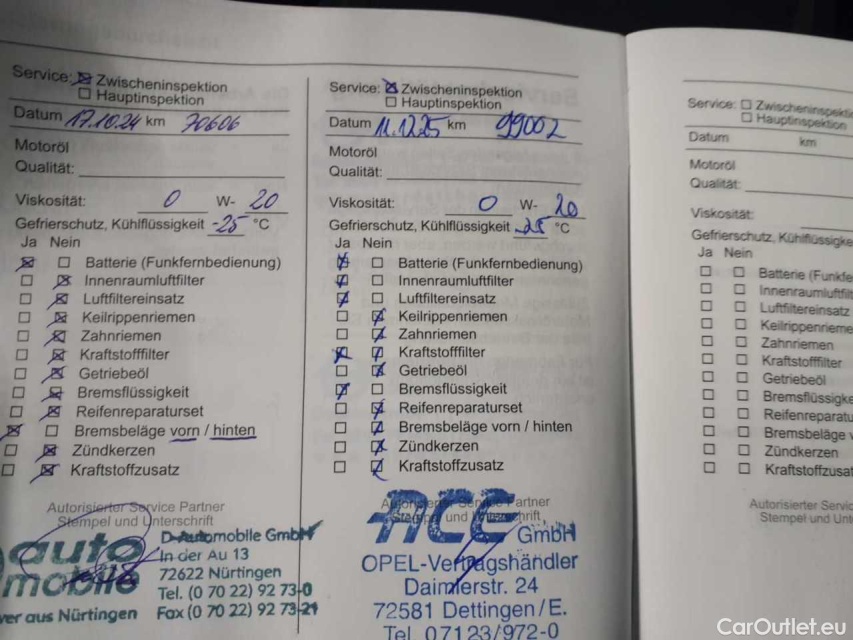 Service: Zwischeninspektion
Hauptinspektion
Datum 17.10.24 km 70606
Motoröl
Qualität:
Viskosität: 0 W- 20
Gefrierschutz, Kühlflüssigkeit -25 °C
Ja Nein
Batterie (Funkfernbedienung)
Innenraumluftfilter
Luftfiltereinsatz
Keilrippenriemen
Zahnriemen
Kraftstofffilter
Getriebeöl
Bremsflüssigkeit
Reifenreparaturset
Bremsbeläge vorn / hinten
Zündkerzen
Kraftstoffzusatz
Autorisierter Service Partner
Stempel und Unterschrift
auto
mobile
D-Automobile GmbH
In der Au 13
72622 Nürtingen
Tel. (0 70 22) 92 73-0
Fax (0 70 22) 92 73-21
aus Nürtingen
Service: Zwischeninspektion
Hauptinspektion
Datum 11.12.25 km 99002
Motoröl
Qualität:
Viskosität: 0 W- 20
Gefrierschutz, Kühlflüssigkeit -25 °C
Ja Nein
Batterie (Funkfernbedienung)
Innenraumluftfilter
Luftfiltereinsatz
Keilrippenriemen
Zahnriemen
Kraftstofffilter
Getriebeöl
Bremsflüssigkeit
Reifenreparaturset
Bremsbeläge vorn / hinten
Zündkerzen
Kraftstoffzusatz
Autorisierter Service Partner
Stempel und Unterschrift
ACE GmbH
OPEL-Vertragshändler
Daimlerstr. 24
72581 Dettingen/E.
Tel. 07123/972-0
Service: Zwischeninspekti
Hauptinspektion
Datum km
Motoröl
Qualität:
Viskosität:
Gefrierschutz, Kühlflüssigke
Ja Nein
Batterie (Funkfe
Innenraumluftfilt
Luftfiltereinsatz
Keilrippenrieme
Zahnriemen
Kraftstofffilter
Getriebeöl
Bremsflüssigke
Reifenreparatu
Bremsbeläge v
Zündkerzen
Kraftstoffzusat
Autorisierter Servic
Stempel und Unt
CarOutlet.eu